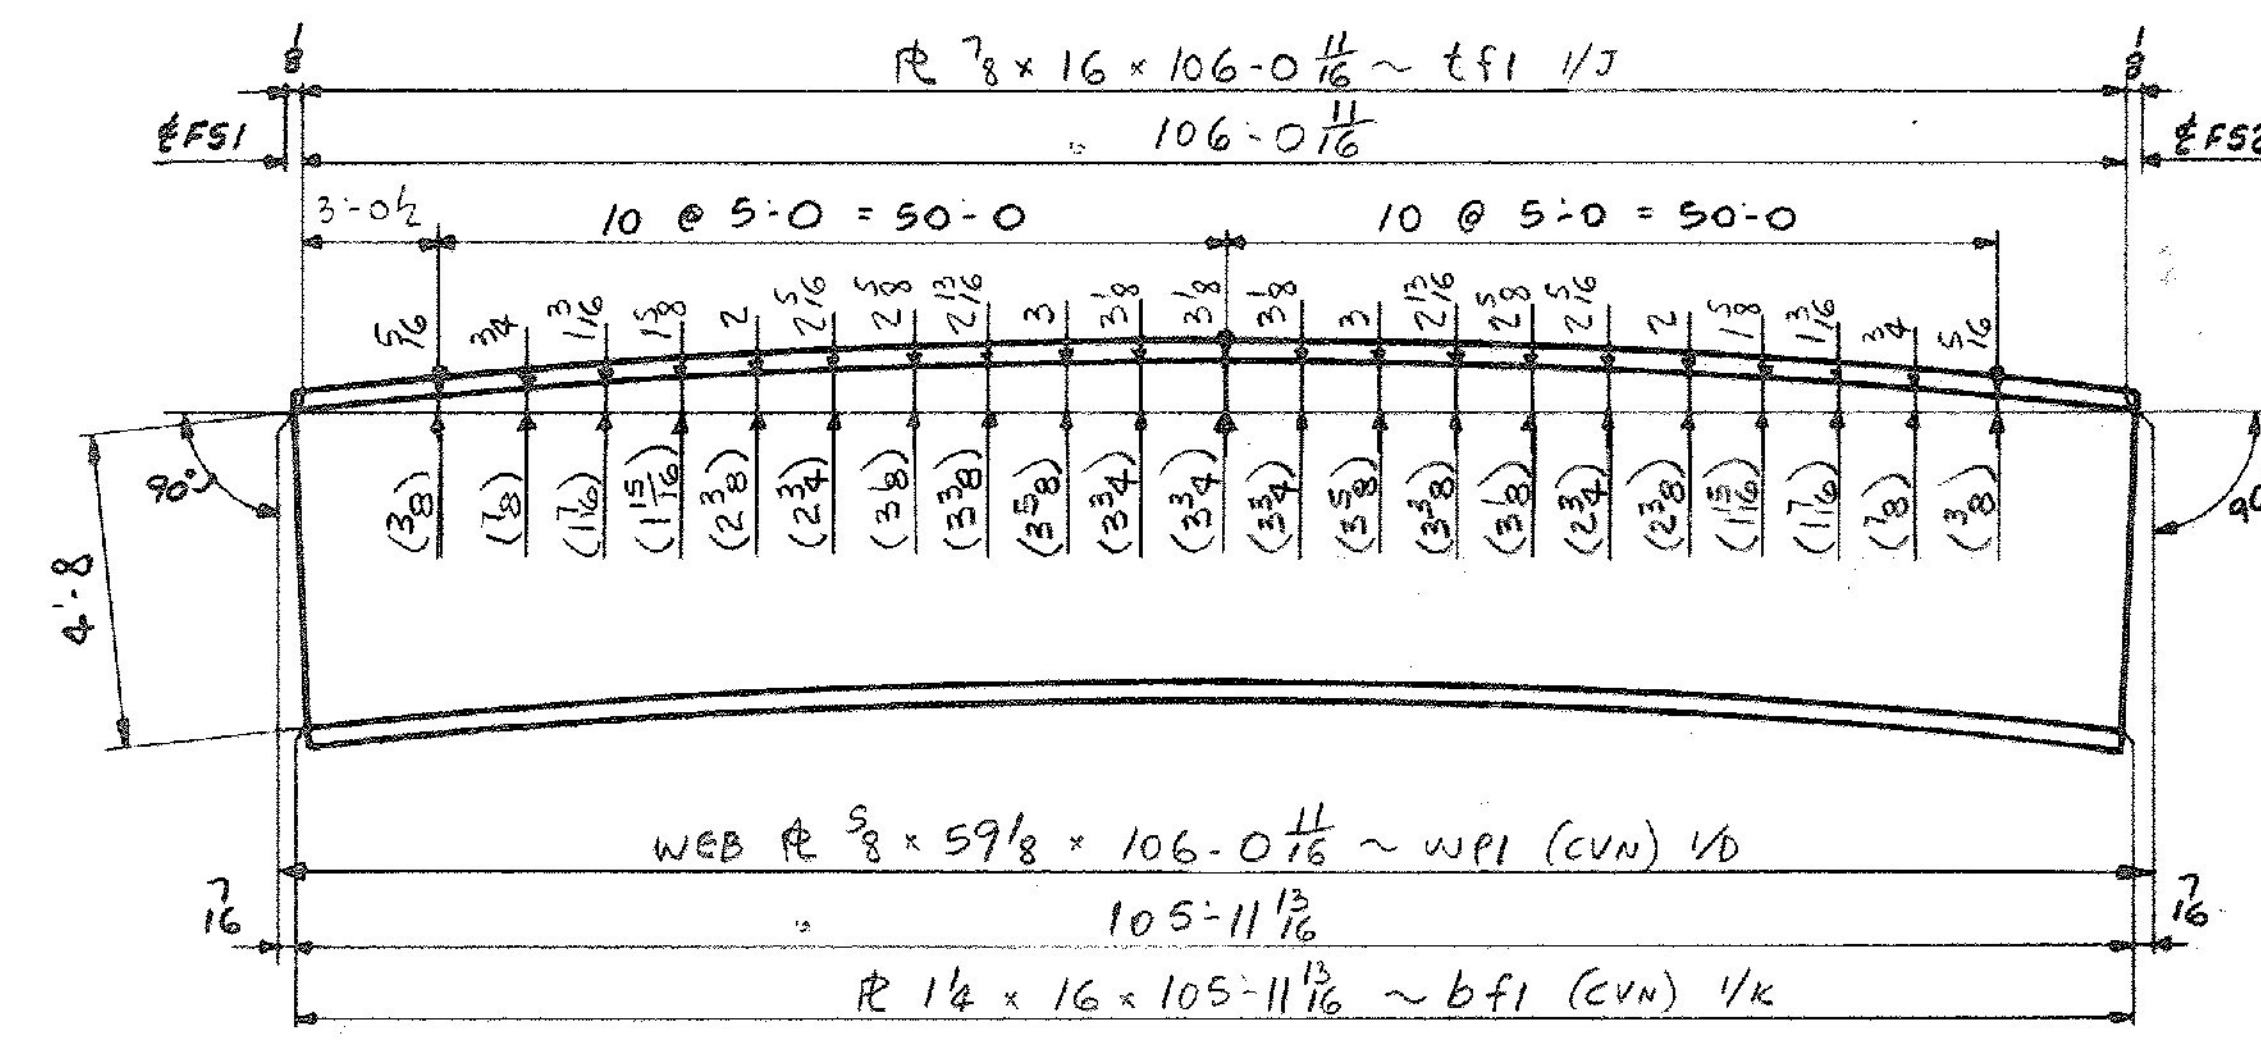 1/8 ⅊ 7/8 x 16 x 106-0 11/16 ~ tf1 1/J 1/8
℄FS1 106-0 11/16 ℄FS2
3-0½ 10 @ 5-0 = 50-0 10 @ 5-0 = 50-0
5/16 3/4 1 3/16 1 5/8 2 2 5/16 2 5/8 2 13/16 3 3 1/8 3 1/8 3 1/8 3 2 13/16 2 5/8 2 5/16 2 1 5/8 1 3/16 3/4 5/16
90° (3/8) (7/8) (1 7/16) (1 15/16) (2 3/8) (2 3/4) (3 1/8) (3 3/8) (3 5/8) (3 3/4) (3 3/4) (3 3/4) (3 5/8) (3 3/8) (3 1/8) (2 3/4) (2 3/8) (1 15/16) (1 7/16) (7/8) (3/8) 90
4'-8
WEB ⅊ 5/8 x 59 1/8 x 106-0 11/16 ~ WP1 (CVN) 1/D
7/16 105-11 13/16 7/16
⅊ 1 1/4 x 16 x 105-11 13/16 ~ bf1 (CVN) 1/K